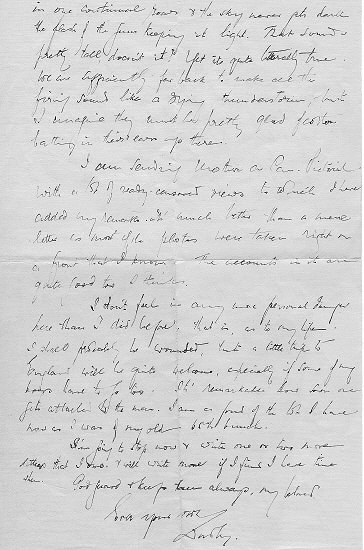 in one continual roar & the sky never gets dark
the flash of the guns keeping it light. That sounds
pretty tall doesn't it? Yet its quite literally true.
We are sufficiently far back to make all the
firing sound like a dying thunderstorm, but
I imagine they must be pretty glad of cotton
batting in their ears up there.
I am sending Mother a Can. Pictorial
with a lot of ready-censored news to which I have
added my remarks. It's much better than a mere
letter as most of the photos were taken right on
a front that I know. The accounts in it are
quite good too I think.
I don't feel in any more personal danger
here than I did before, that is, as to my life.
I shall probably be wounded, but a little trip to
England will be quite welcome, especially if some of my
have to go too. It's remarkable how soon one
gets attached to the men. I am as fond of the lot I have
now as I was of my old bunch.
I'm going to stop now & write one or two more
letters that I owe & will write more if I find I have time
then. God guard & keep you always, my beloved
Ever yours